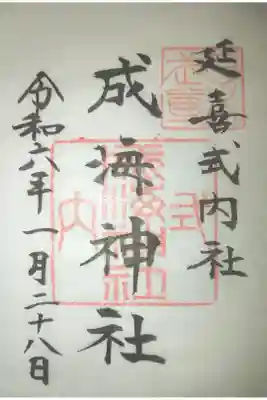 延喜式内社
成海神社
令和六年一月二十八日